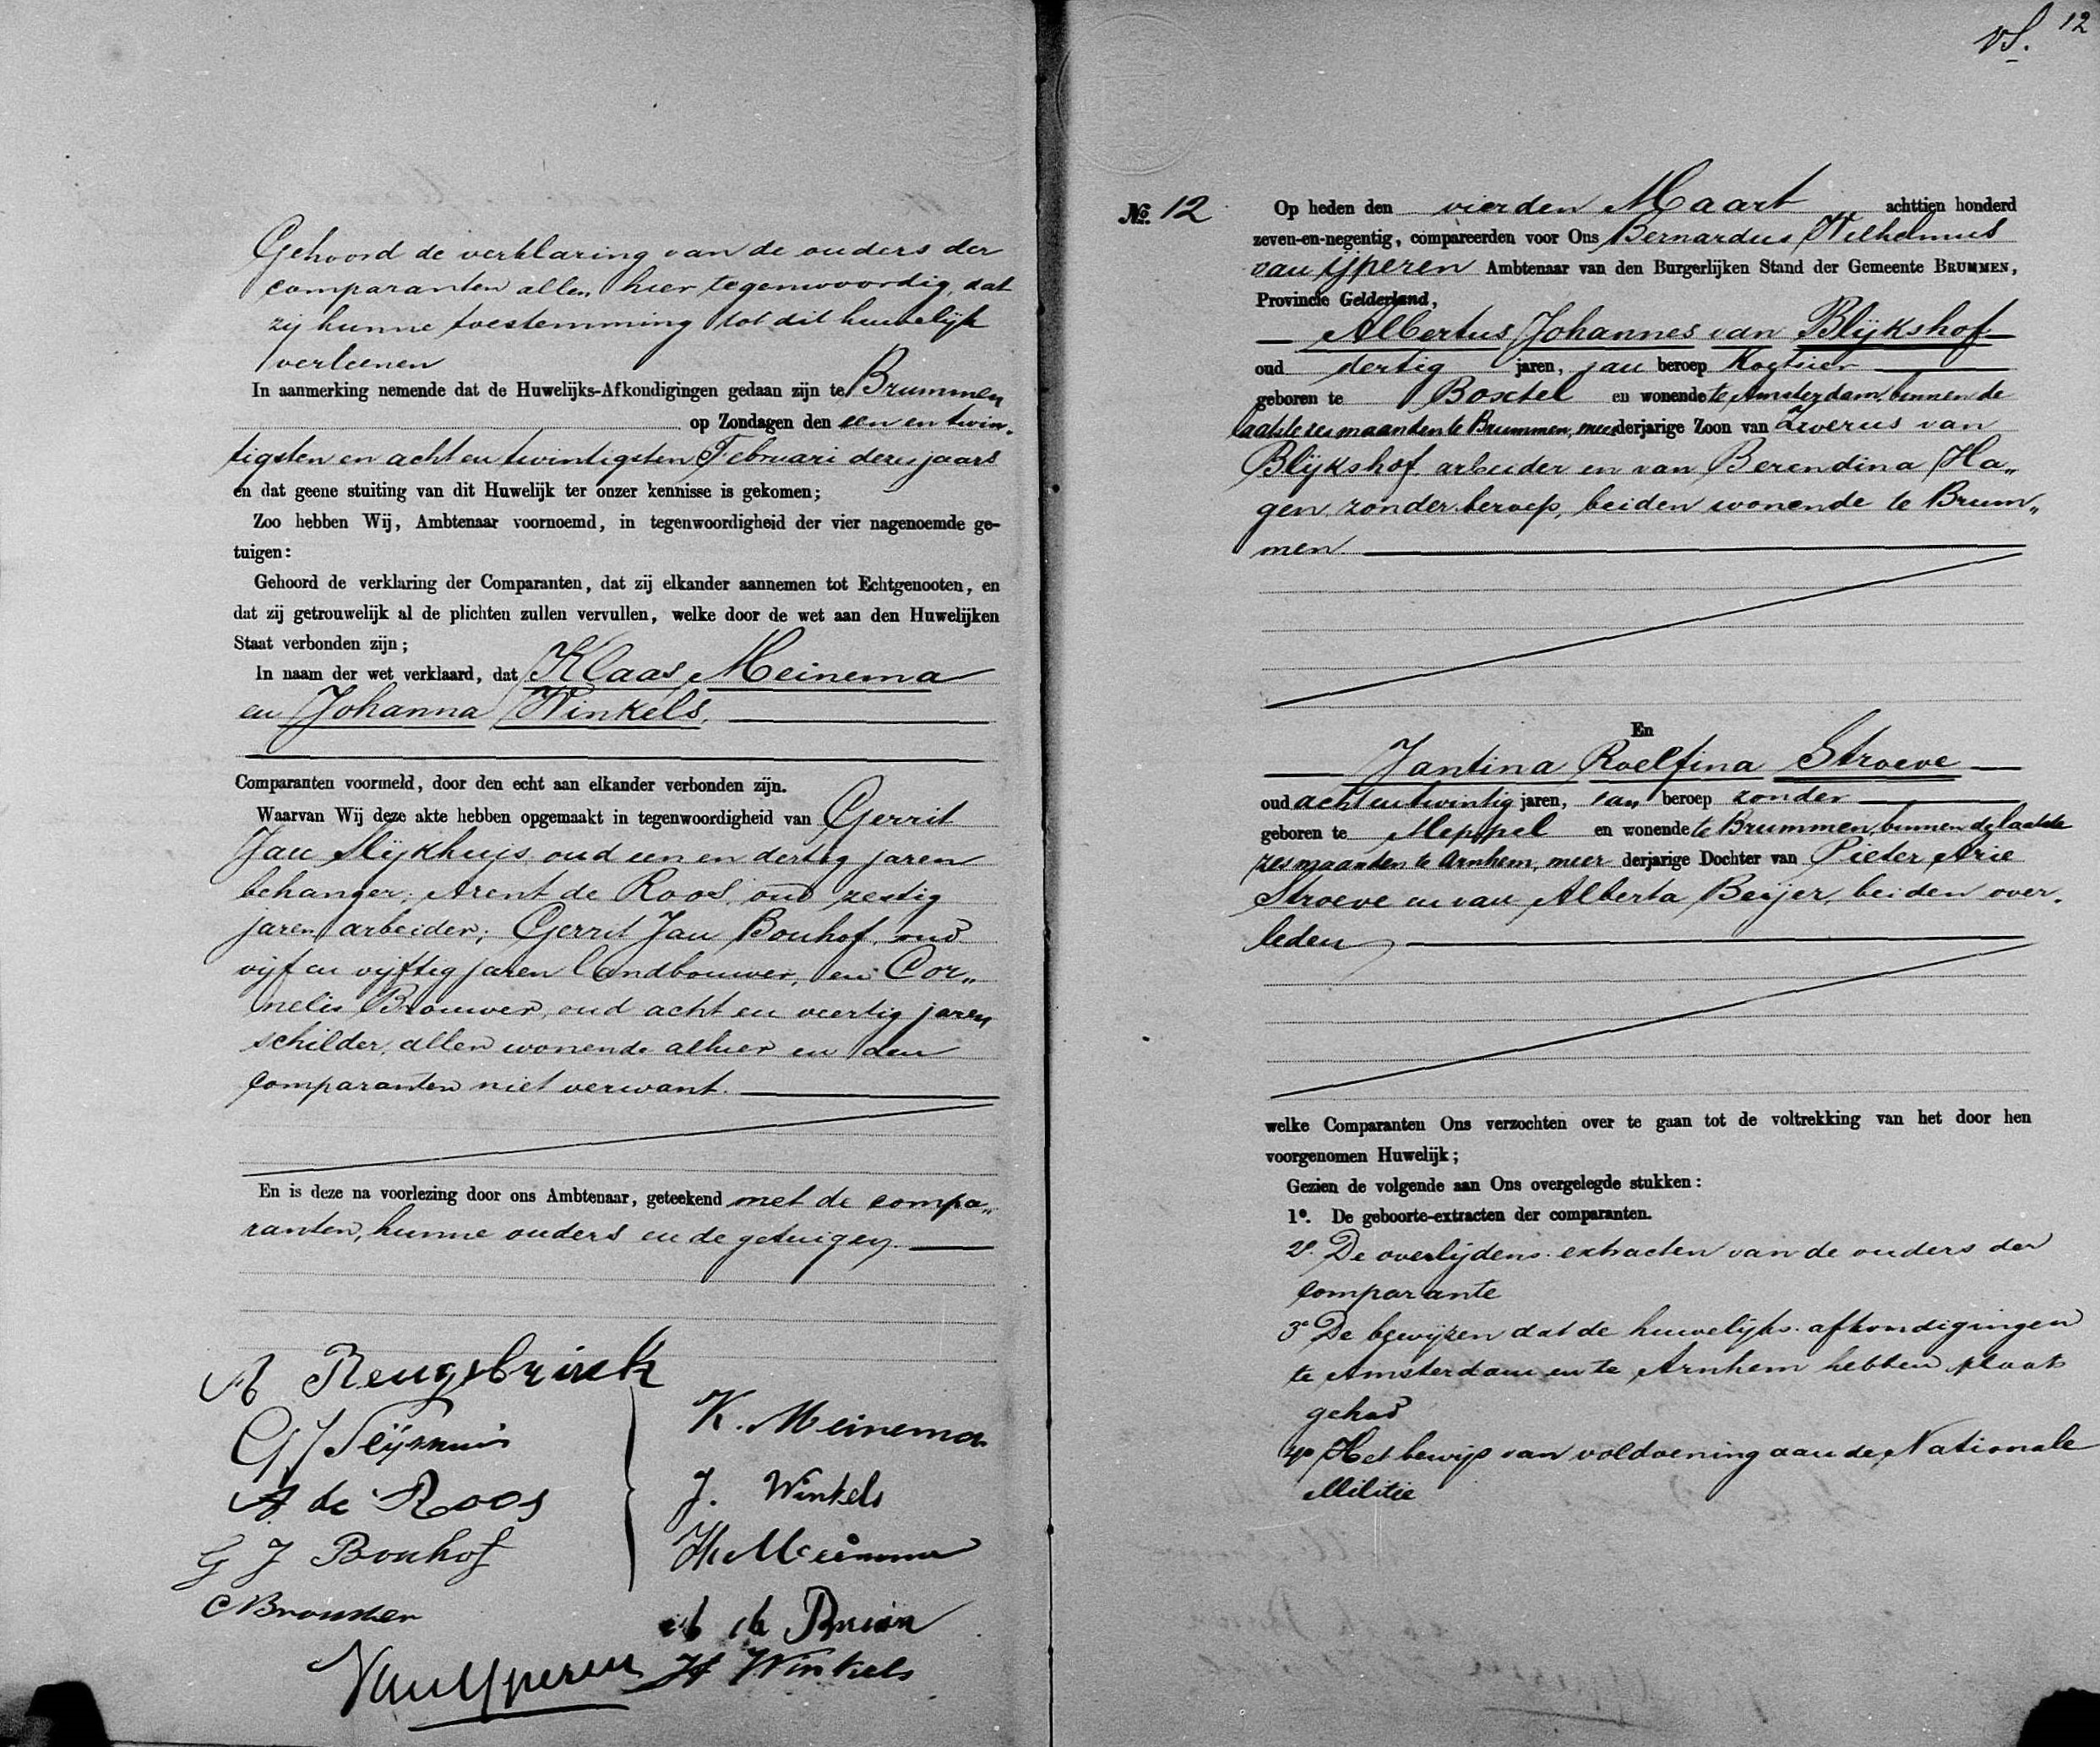 Gehoord de verklaring van de ouders der
comparanten allen hier tegenwoordig, dat
zij hunne toestemming tot dit huwelijk
verleenen
In aanmerking nemende dat de Huwelijks-Afkondigingen gedaan zijn te Brummen
op Zondagen den een en twin„
tigsten en acht en twintigsten Februari dezes jaars
en dat geene stuiting van dit Huwelijk ter onzer kennisse is gekomen;
Zoo hebben Wij, Ambtenaar voornoemd, in tegenwoordigheid der vier nagenoemde ge-
tuigen:
Gehoord de verklaring der Comparanten, dat zij elkander aannemen tot Echtgenooten, en
dat zij getrouwelijk al de plichten zullen vervullen, welke door de wet aan den Huwelijken
Staat verbonden zijn;
In naam der wet verklaard, dat Klaas Meinema
en Johanna Winkels.
Comparanten voormeld, door den echt aan elkander verbonden zijn.
Waarvan Wij deze akte hebben opgemaakt in tegenwoordigheid van Gerrit
Jan Slijkhuijs oud een en dertig jaren
behanger; Arent de Roos, oud zestig
jaren arbeider; Gerrit Jan Bouhof, oud
vijf en vijftig jaren landbouwer, en Cor„
nelis Brouwer, oud acht en veertig jaren
schilder, allen wonende alhier en den
comparanten niet verwant.
En is deze na voorlezing door ons Ambtenaar, geteekend met de compa„
ranten, hunne ouders en de getuigen.
A Reugebrink
K. Meinema
G J Slijkhuis
A de Roos
J. Winkels
G J Bouhof
H Meinema
C Brouwer
de Bruin
Van Yperen
H Winkels
VS. 12
No. 12
Op heden den vierden Maart achttien honderd
zeven-en-negentig, compareerden voor Ons Bernardus Wilhelmus
van Yperen Ambtenaar van den Burgerlijken Stand der Gemeente BRUMMEN,
Provincie Gelderland,
Albertus Johannes van Blijkshof
oud dertig jaren, van beroep Koetsier
geboren te Boxtel en wonende te Amsterdam, binnen de
laatste zes maanden te Brummen, meerderjarige Zoon van Zwerus van
Blijkshof arbeider en van Berendina Ha„
gen, zonder beroep, beiden wonende te Brum„
men
En
Jantina Roelfina Stroeve
oud acht en twintig jaren, van beroep zonder
geboren te Meppel en wonende te Brummen, binnen de laatste
zes maanden te Arnhem, meerderjarige Dochter van Pieter Arie
Stroeve en van Alberta Beijer, beiden over„
leden
welke Comparanten Ons verzochten over te gaan tot de voltrekking van het door hen
voorgenomen Huwelijk;
Gezien de volgende aan Ons overgelegde stukken:
1º. De geboorte-extracten der comparanten.
2º. De overlijdens-extracten van de ouders der
comparante
3º De bewijzen dat de huwelijks-afkondigingen
te Amsterdam en te Arnhem hebben plaats
gehad
4º Het bewijs van voldoening aan de Nationale
Militie